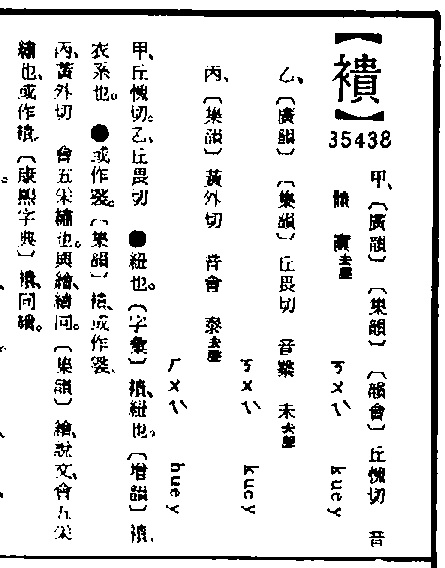 【䙡】
35438
甲、〔廣韻〕〔集韻〕〔韻會〕丘愧切 音
寘去聲 ㄎㄨㄟˋ kuey
乙、〔廣韻〕〔集韻〕丘畏切 音 未去聲
ㄎㄨㄟˋ kuey
丙、〔集韻〕黃外切 音會 泰去聲
ㄏㄨㄟˋ huey
甲、丘愧切。乙、丘畏切 ●紐也。〔字彙〕䙡、紐也。〔增韻〕䙡、
衣系也。●或作。〔集韻〕䙡、或作。
丙、黃外切 會五采繡也。與繪、繢同。〔集韻〕繪、說文、會五采
繡也、或作䙡。〔康熙字典〕䙡、同繢。